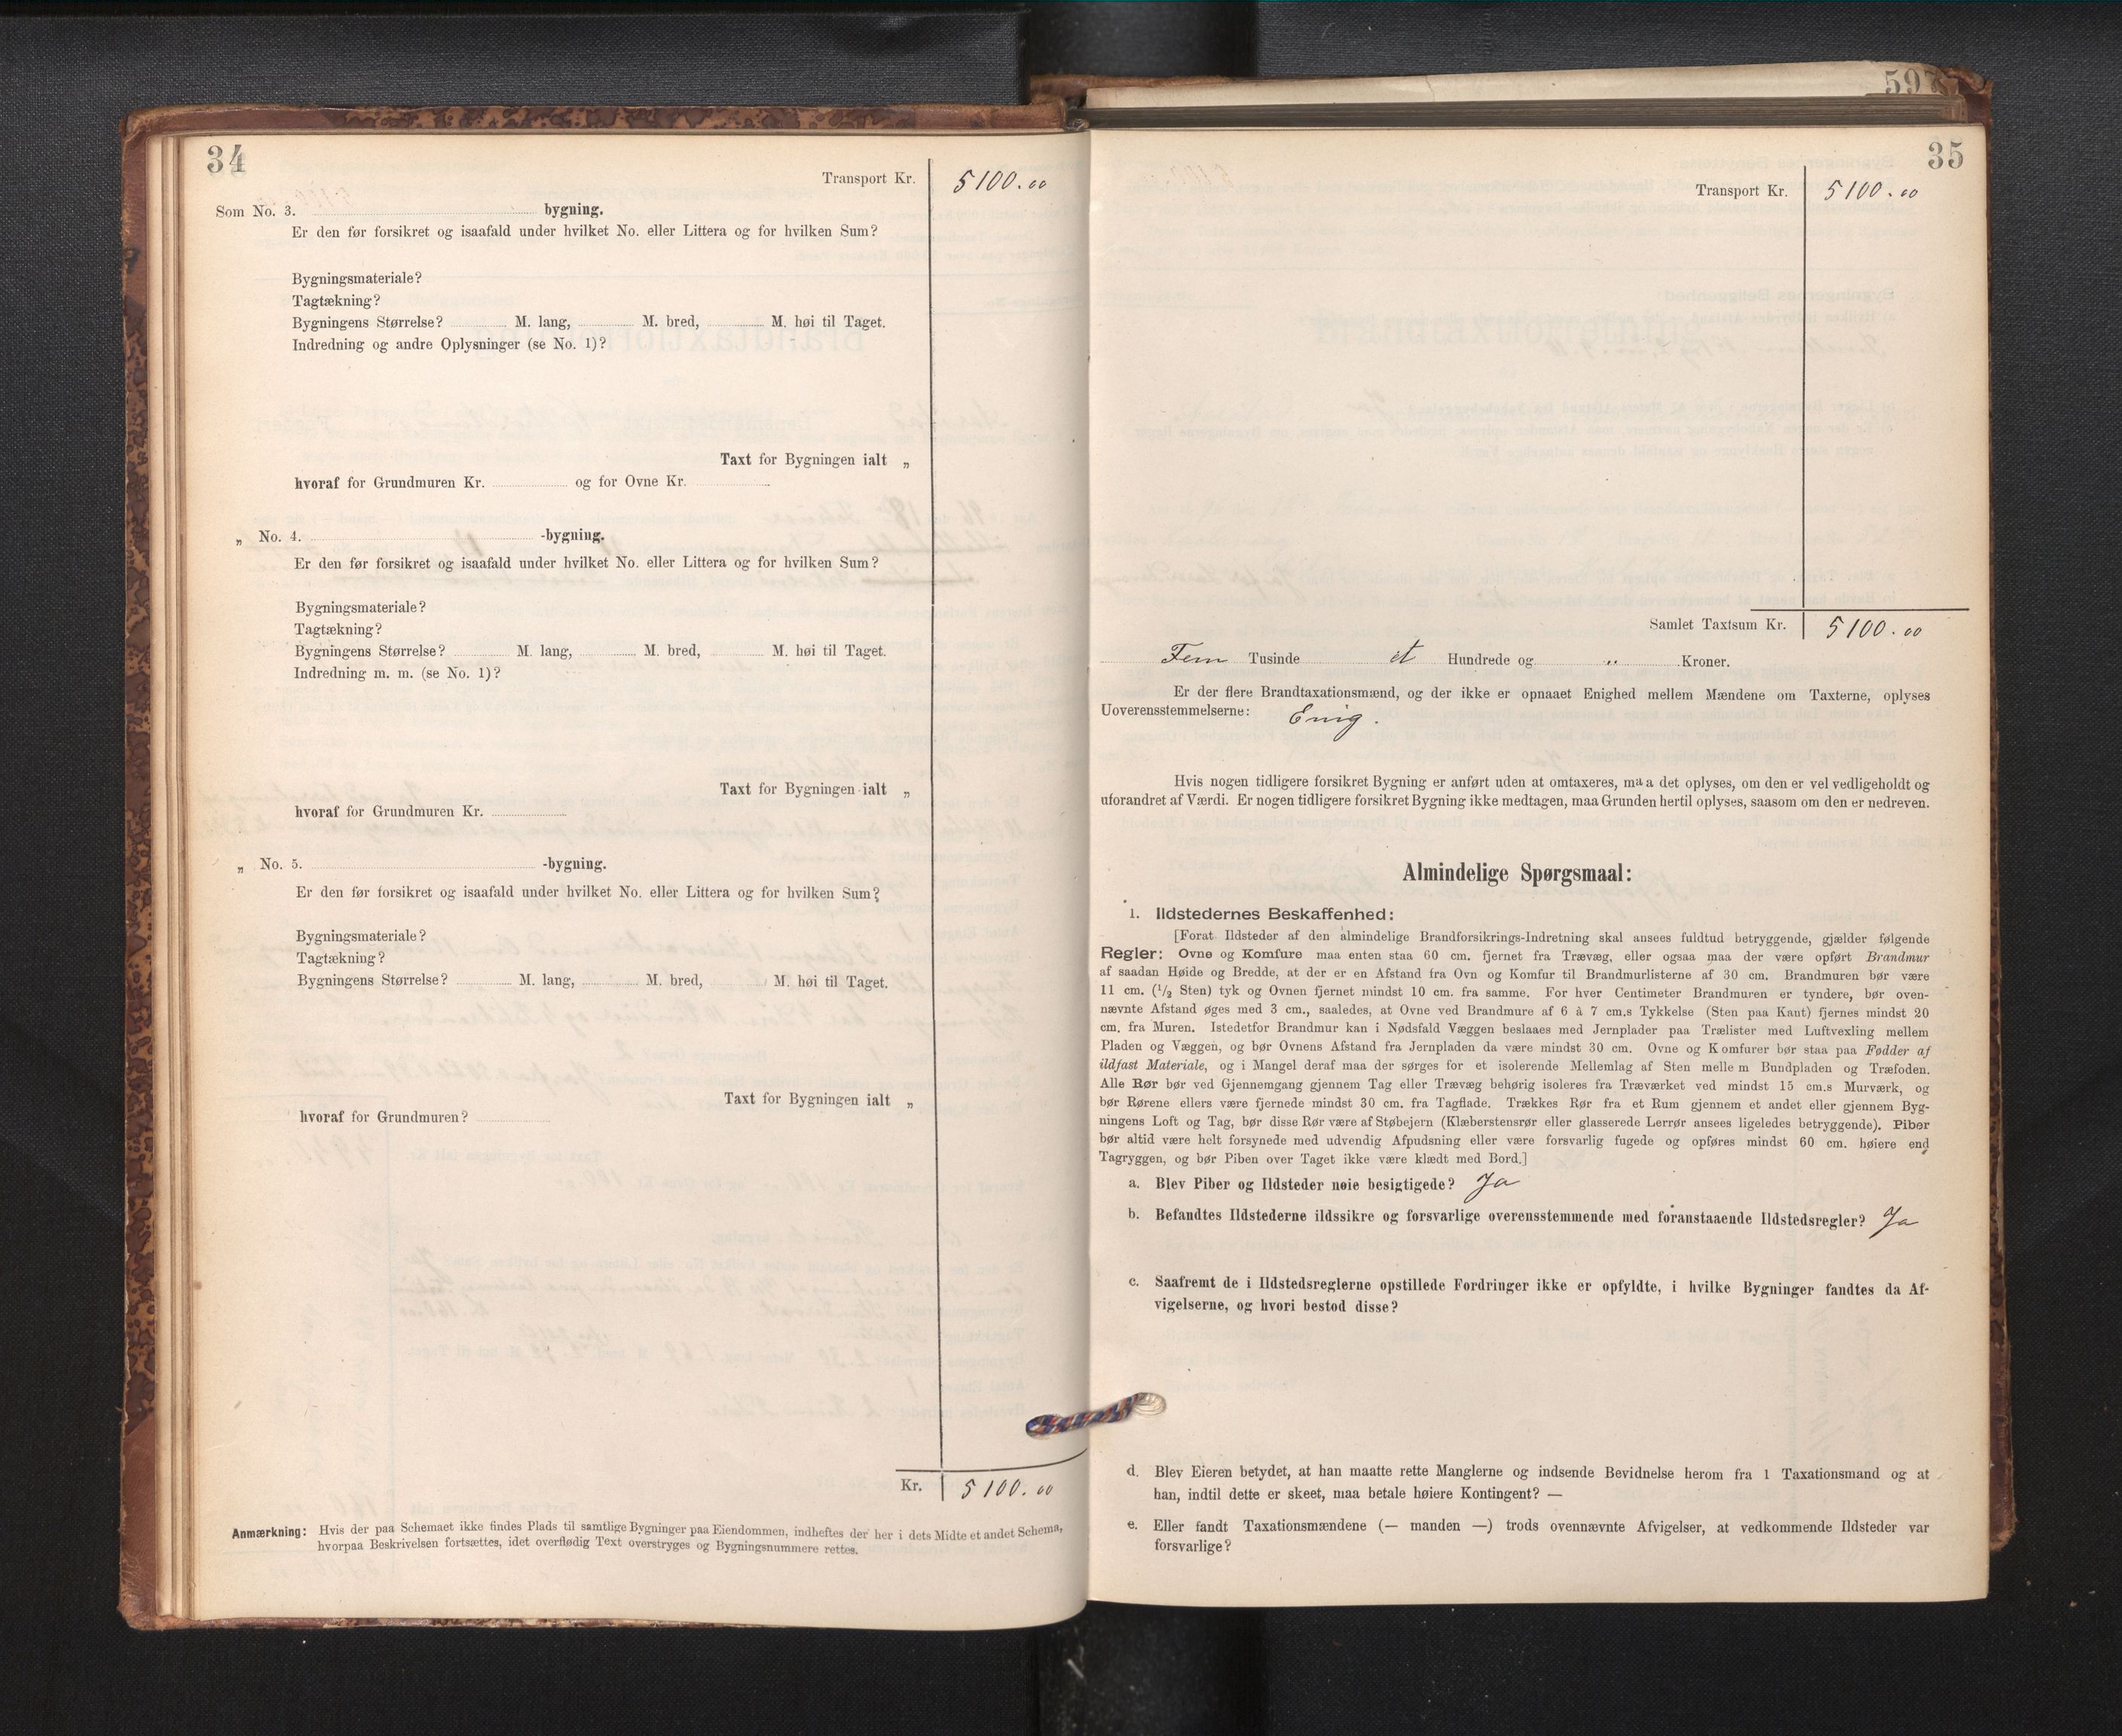 34
Transport Kr. 5100.00
Som No. 3. bygning.
Er den før forsikret og isaafald under hvilket No. eller Littera og for hvilken Sum?
Bygningsmateriale?
Tagtækning?
Bygningens Størrelse? M. lang, M. bred, M. høi til Taget.
Indredning og andre Oplysninger (se No. 1)?
Taxt for Bygningen ialt „
hvoraf for Grundmuren Kr. og for Ovne Kr.
„ No. 4. -bygning.
Er den før forsikret og isaafald under hvilket No. eller Littera og for hvilken Sum?
Bygningsmateriale?
Tagtækning?
Bygningens Størrelse? M. lang, M. bred, M. høi til Taget.
Indredning m. m. (se No. 1)?
Taxt for Bygningen ialt „
hvoraf for Grundmuren Kr.
„ No. 5. -bygning.
Er den før forsikret og isaafald under hvilket No. eller Littera og for hvilken Sum?
Bygningsmateriale?
Tagtækning?
Bygningens Størrelse? M. lang, M. bred, M. høi til Taget.
Taxt for Bygningen ialt „
hvoraf for Grundmuren?
Kr. 5100.00
Anmærkning: Hvis der paa Schemaet ikke findes Plads til samtlige Bygninger paa Eiendommen, indheftes der her i dets Midte et andet Schema,
hvorpaa Beskrivelsen fortsættes, idet overflødig Text overstryges og Bygningsnummere rettes.
597
35
Transport Kr. 5100.00
Samlet Taxtsum Kr. 5100.00
Fem Tusinde et Hundrede og „ Kroner.
Er der flere Brandtaxationsmænd, og der ikke er opnaaet Enighed mellem Mændene om Taxterne, oplyses
Uoverensstemmelserne: Enig.
Hvis nogen tidligere forsikret Bygning er anført uden at omtaxeres, maa det oplyses, om den er vel vedligeholdt og
uforandret af Værdi. Er nogen tidligere forsikret Bygning ikke medtagen, maa Grunden hertil oplyses, saasom om den er nedreven.
Almindelige Spørgsmaal:
1. Ildstedernes Beskaffenhed:
[Forat Ildsteder af den almindelige Brandforsikrings-Indretning skal ansees fuldtud betryggende, gjælder følgende
Regler: Ovne og Komfure maa enten staa 60 cm. fjernet fra Trævæg, eller ogsaa maa der være opført Brandmur
af saadan Høide og Bredde, at der er en Afstand fra Ovn og Komfur til Brandmurlisterne af 30 cm. Brandmuren bør være
11 cm. (1/2 Sten) tyk og Ovnen fjernet mindst 10 cm. fra samme. For hver Centimeter Brandmuren er tyndere, bør oven-
nævnte Afstand øges med 3 cm., saaledes, at Ovne ved Brandmure af 6 à 7 cm.s Tykkelse (Sten paa Kant) fjernes mindst 20
cm. fra Muren. Istedetfor Brandmur kan i Nødsfald Væggen beslaaes med Jernplader paa Trælister med Luftvexling mellem
Pladen og Væggen, og bør Ovnens Afstand fra Jernpladen da være mindst 30 cm. Ovne og Komfurer bør staa paa Fødder af
ildfast Materiale, og i Mangel deraf maa der sørges for et isolerende Mellemlag af Sten mellem Bundpladen og Træfoden.
Alle Rør bør ved Gjennemgang gjennem Tag eller Trævæg behørig isoleres fra Træværket ved mindst 15 cm.s Murværk, og
bør Rørene ellers være fjernede mindst 30 cm. fra Tagflade. Trækkes Rør fra et Rum gjennem et andet eller gjennem Byg-
ningens Loft og Tag, bør disse Rør være af Støbejern (Klæberstensrør eller glasserede Lerrør ansees ligeledes betryggende). Piber
bør altid være helt forsynede med udvendig Afpudsning eller være forsvarlig fugede og opføres mindst 60 cm. høiere end
Tagryggen, og bør Piben over Taget ikke være klædt med Bord.]
a. Blev Piber og Ildsteder nøie besigtigede? Ja
b. Befandtes Ildstederne ildssikre og forsvarlige overensstemmende med foranstaaende Ildstedsregler? Ja
c. Saafremt de i Ildstedsreglerne opstillede Fordringer ikke er opfyldte, i hvilke Bygninger fandtes da Af-
vigelserne, og hvori bestod disse?
d. Blev Eieren betydet, at han maatte rette Manglerne og indsende Bevidnelse herom fra 1 Taxationsmand og at
han, indtil dette er skeet, maa betale høiere Kontingent? —
e. Eller fandt Taxationsmændene (— manden —) trods ovennævnte Afvigelser, at vedkommende Ildsteder var
forsvarlige?